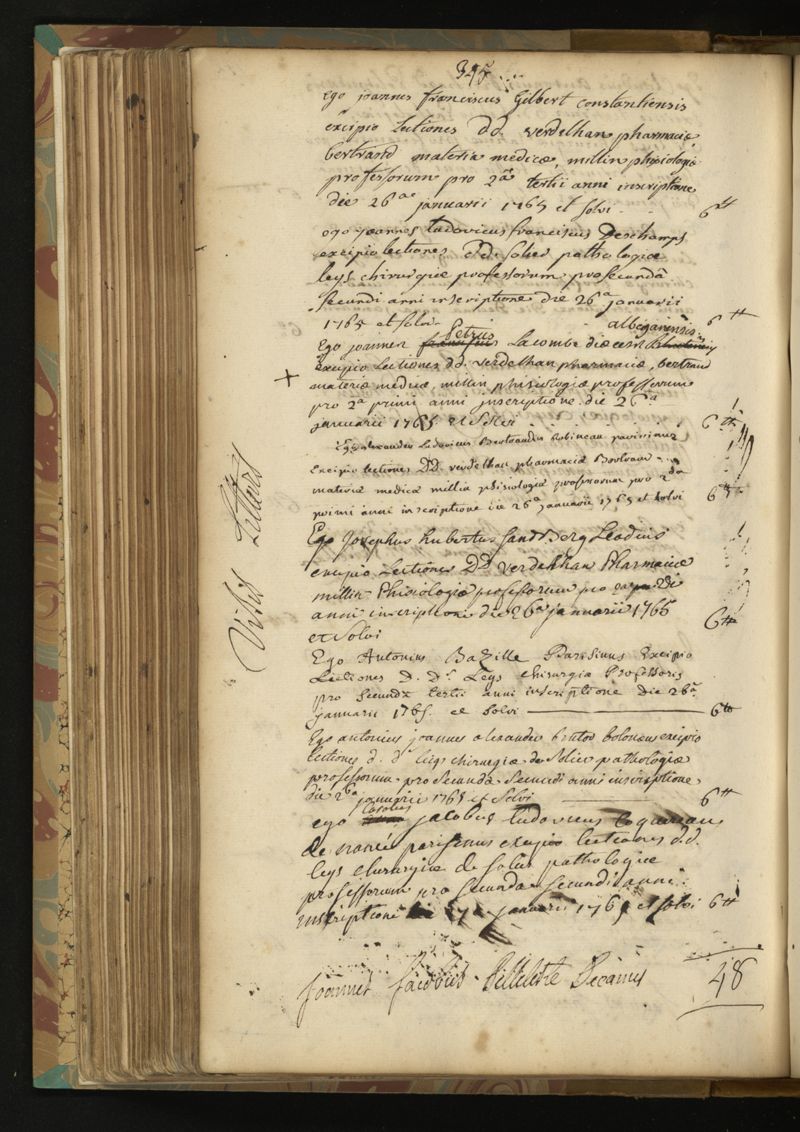 345
Ego joannes franciscus Gilbert constantiensis
excipio Lectiones dd. verdelhan pharmaciæ,
bertrand materiæ medicæ, millin phisiologiæ
professorum pro 2ª tertii anni inscriptione
die 26ª januarii 1765 et solvi 6  tt
ego joannes Ludovicus franciscus Deschamps
excipio lectiones dd. solier pathologiæ
leys chirurgiæ professorum pro secundâ
secundi anni inscriptione die 26ª januarii
1765 et solvi. 6 tt
Petrus albiganensis
Ego joannes Lacombe
excipio Lectiones dd. verdelhan pharmaciæ, bertrand
materiæ medicæ, millin phisiologiæ professorum
pro 2ª primi anni inscriptione die 26ª
januarii 1765. et solvi 6 tt
Ego alexander Ludovicus Bertrandus Robineau parisinus
Excipio lectiones DD verdelhan pharmaciæ Bertrand
materiæ medicæ millin phisiologiæ professorum pro 2da
primi anni inscriptione die 26ª januarii 1765 et solvi 6 tt
Ego Josephus hubertus Sandberg Leodius
excipio Lectiones DD verdelhan Pharmaciæ
millin Phisiologiæ professorum pro
anni inscriptioni die 26ª januarii 1765
et Solvi 6 tt
Ego Antonius Bazille Parisinus Excipio
Lectiones D. Di Leys chirurgiæ Professoris
pro secunda tertii anni inscriptione Die 26ª
januarii 1765. et solvi 6 tt
Ego antonius joannes alexander excipio
lectiones d. d. leys chirurgiæ de Solier pathologiæ
professorum pro secunda secundi anni inscriptione
die 26ª januarii 1765 et Solvi 6 tt
ego jacobus ludovicus
de parisinus excipio lectiones d.d.
leys chirurgiæ de solier pathologiæ
professorum pro secunda secundi anni
inscriptioni januarii 1765 et solvi 6 tt
Joannes Jacobus Belleteste Decanus 48
Visis Litteris